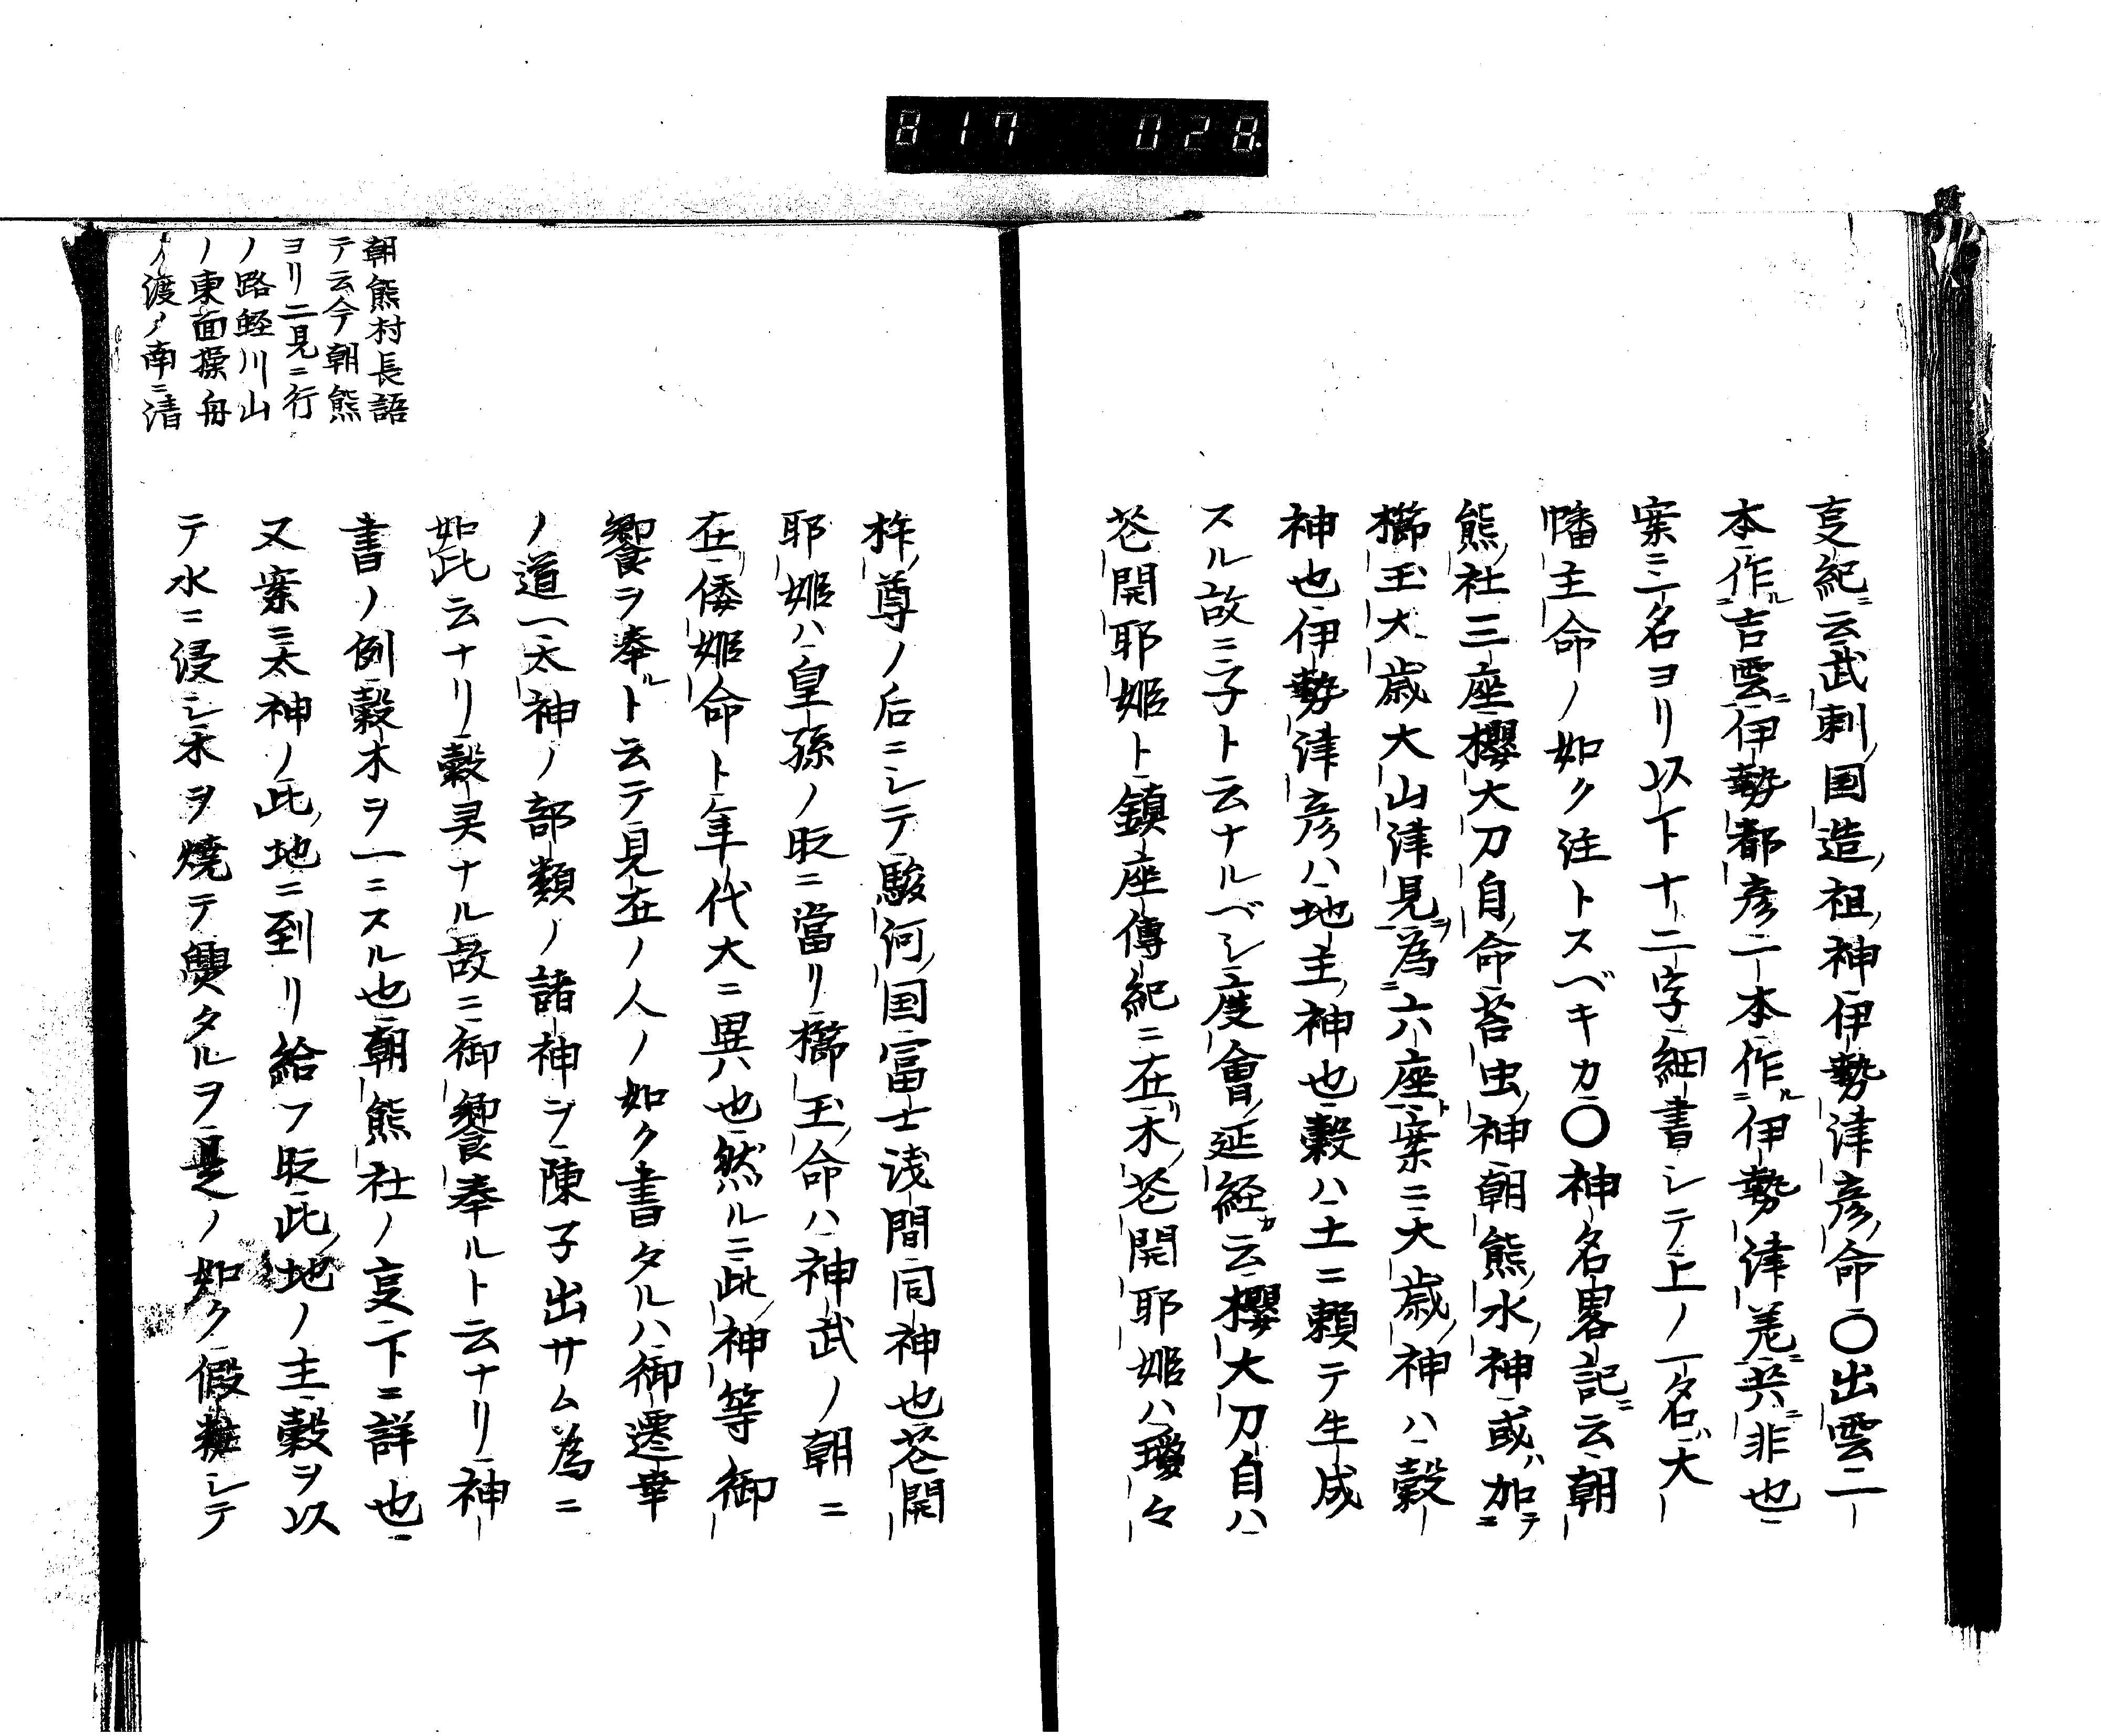 817 028
亊紀ニ云武刺国造祖神伊勢津彦命〇出雲二
本作ルニ吉雲ニ伊勢都彦一本作ルニ伊勢津羗ニ共ニ非也
案ニ三名ヨリ以下十二字細書シテ上ノ一名大
幡主命ノ如ク注トスベキカ〇神名畧記ニ云朝
熊社三座櫻大刀自命苔虫神朝熊水神或ハ加テニ
櫛玉大歳大山津見ヲ為ニ六座ト案ニ大歳神ハ穀
神也伊勢津彦ハ地主神也穀ハ土ニ頼テ生成
スル故ニ子ト云ナルベシ度會延経カ云櫻大刀自ハ
苍開耶姫ト鎮座傳紀ニ在リ木苍開耶姫ハ瓊々
杵尊ノ后ニシテ駿河国富士浅間同神也苍開
耶姫ハ皇孫ノ时ニ當リ櫛玉命ハ神武ノ朝ニ
在倭姫命ト年代大ニ異ハ也然ルニ此神等御
饗ヲ奉ルト云テ見在ノ人ノ如ク書タルハ御遷幸
ノ道〳〵太神ノ部類ノ諸神ヲ陳子出サム為ニ
如此云ナリ穀灵ナル故ニ御饗奉ルト云ナリ神
書ノ例穀木ヲ一ニスル也朝熊社ノ亊下ニ詳也
又案ニ太神ノ此地ニ到リ給フ时此地ノ主穀ヲ以
テ水ニ浸シ木ヲ燒テ爨タルヲ是ノ如ク假粧シテ
朝熊村長語
テ云今朝熊
ヨリ二見ニ行
ノ路蛵川山
ノ東面操舟
ノ渡ノ南ニ清